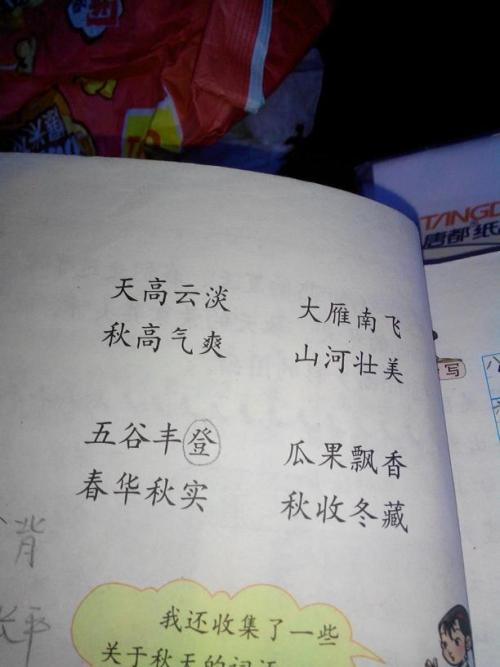 TANGD
唐都纸
天高云淡 大雁南飞
秋高气爽 山河壮美
写
五谷丰登 瓜果飘香
春华秋实 秋收冬藏
背
我还收集了一些
关于秋天的词语